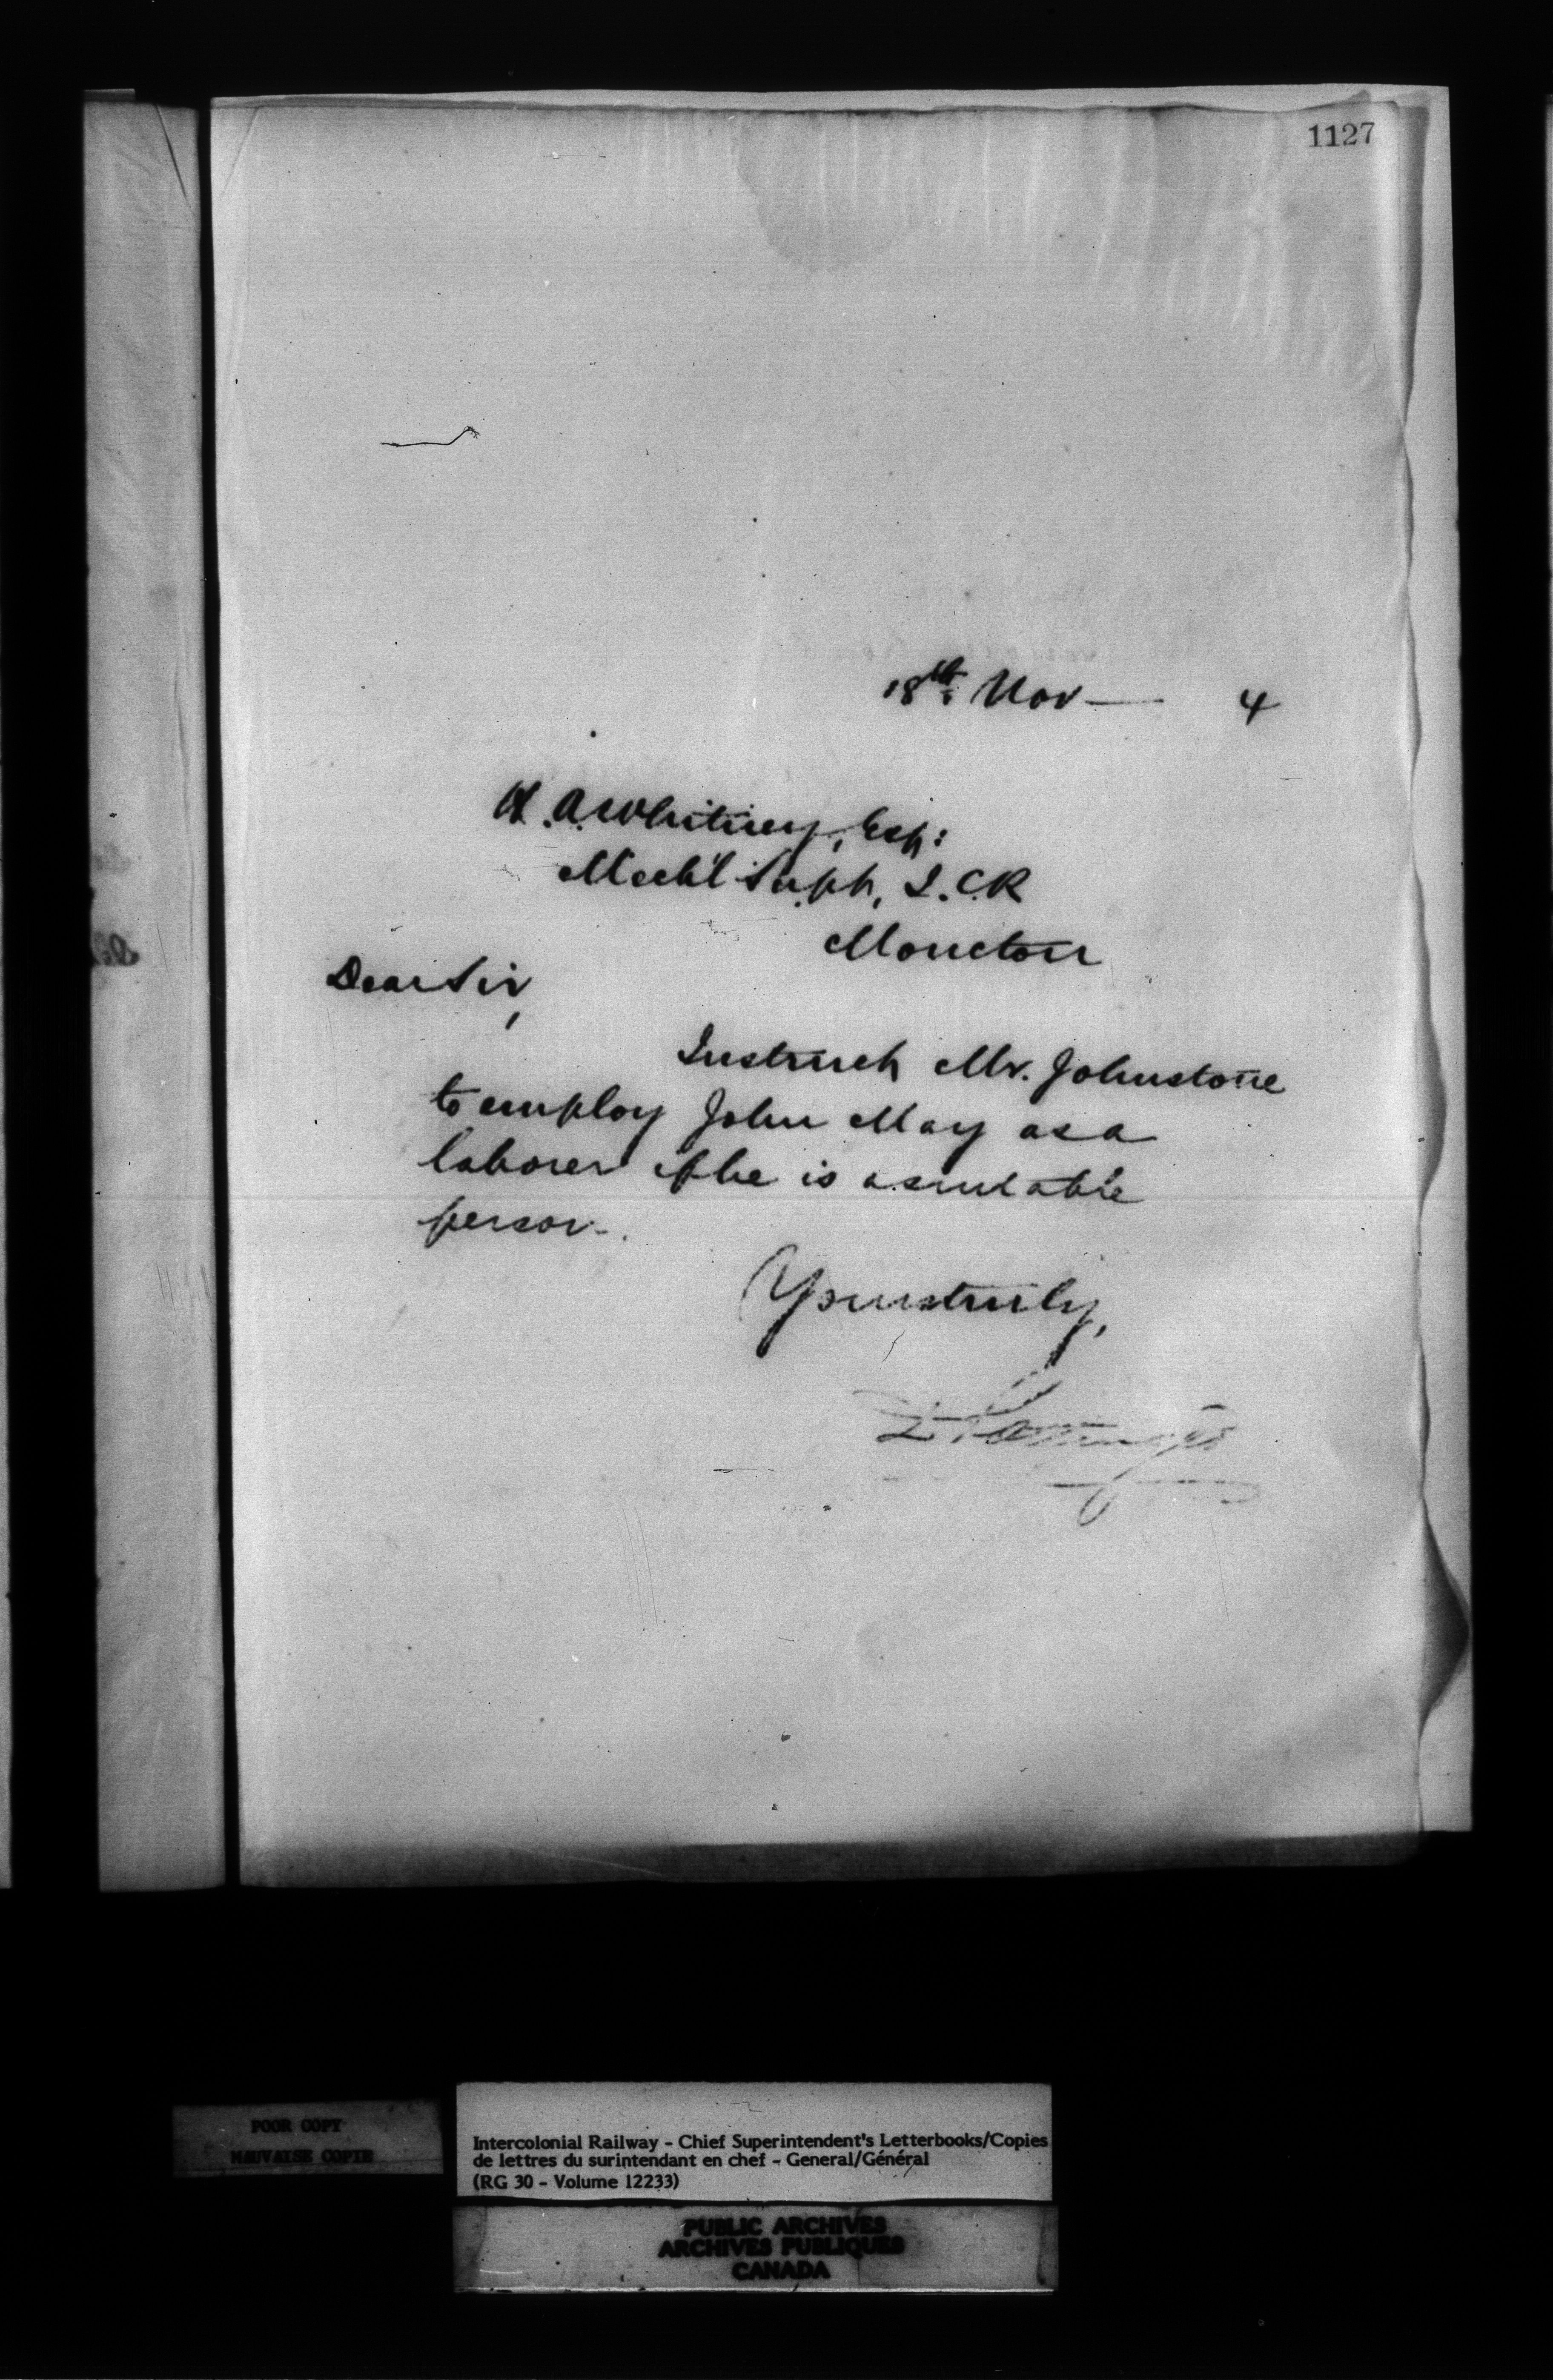 1127
18th Nov — 4
H. A. Whitney, Esq:
Mech'l Supt, I.C.R
Moncton
Dear Sir,
Instruct Mr. Johnstone
to employ John May as a
laborer if he is a suitable
person.
Yours truly,
POOR COPY
MAUVAISE COPIE
Intercolonial Railway - Chief Superintendent's Letterbooks/Copies
de lettres du surintendant en chef - General/Général
(RG 30 - Volume 12233)
PUBLIC ARCHIVES
ARCHIVES PUBLIQUES
CANADA